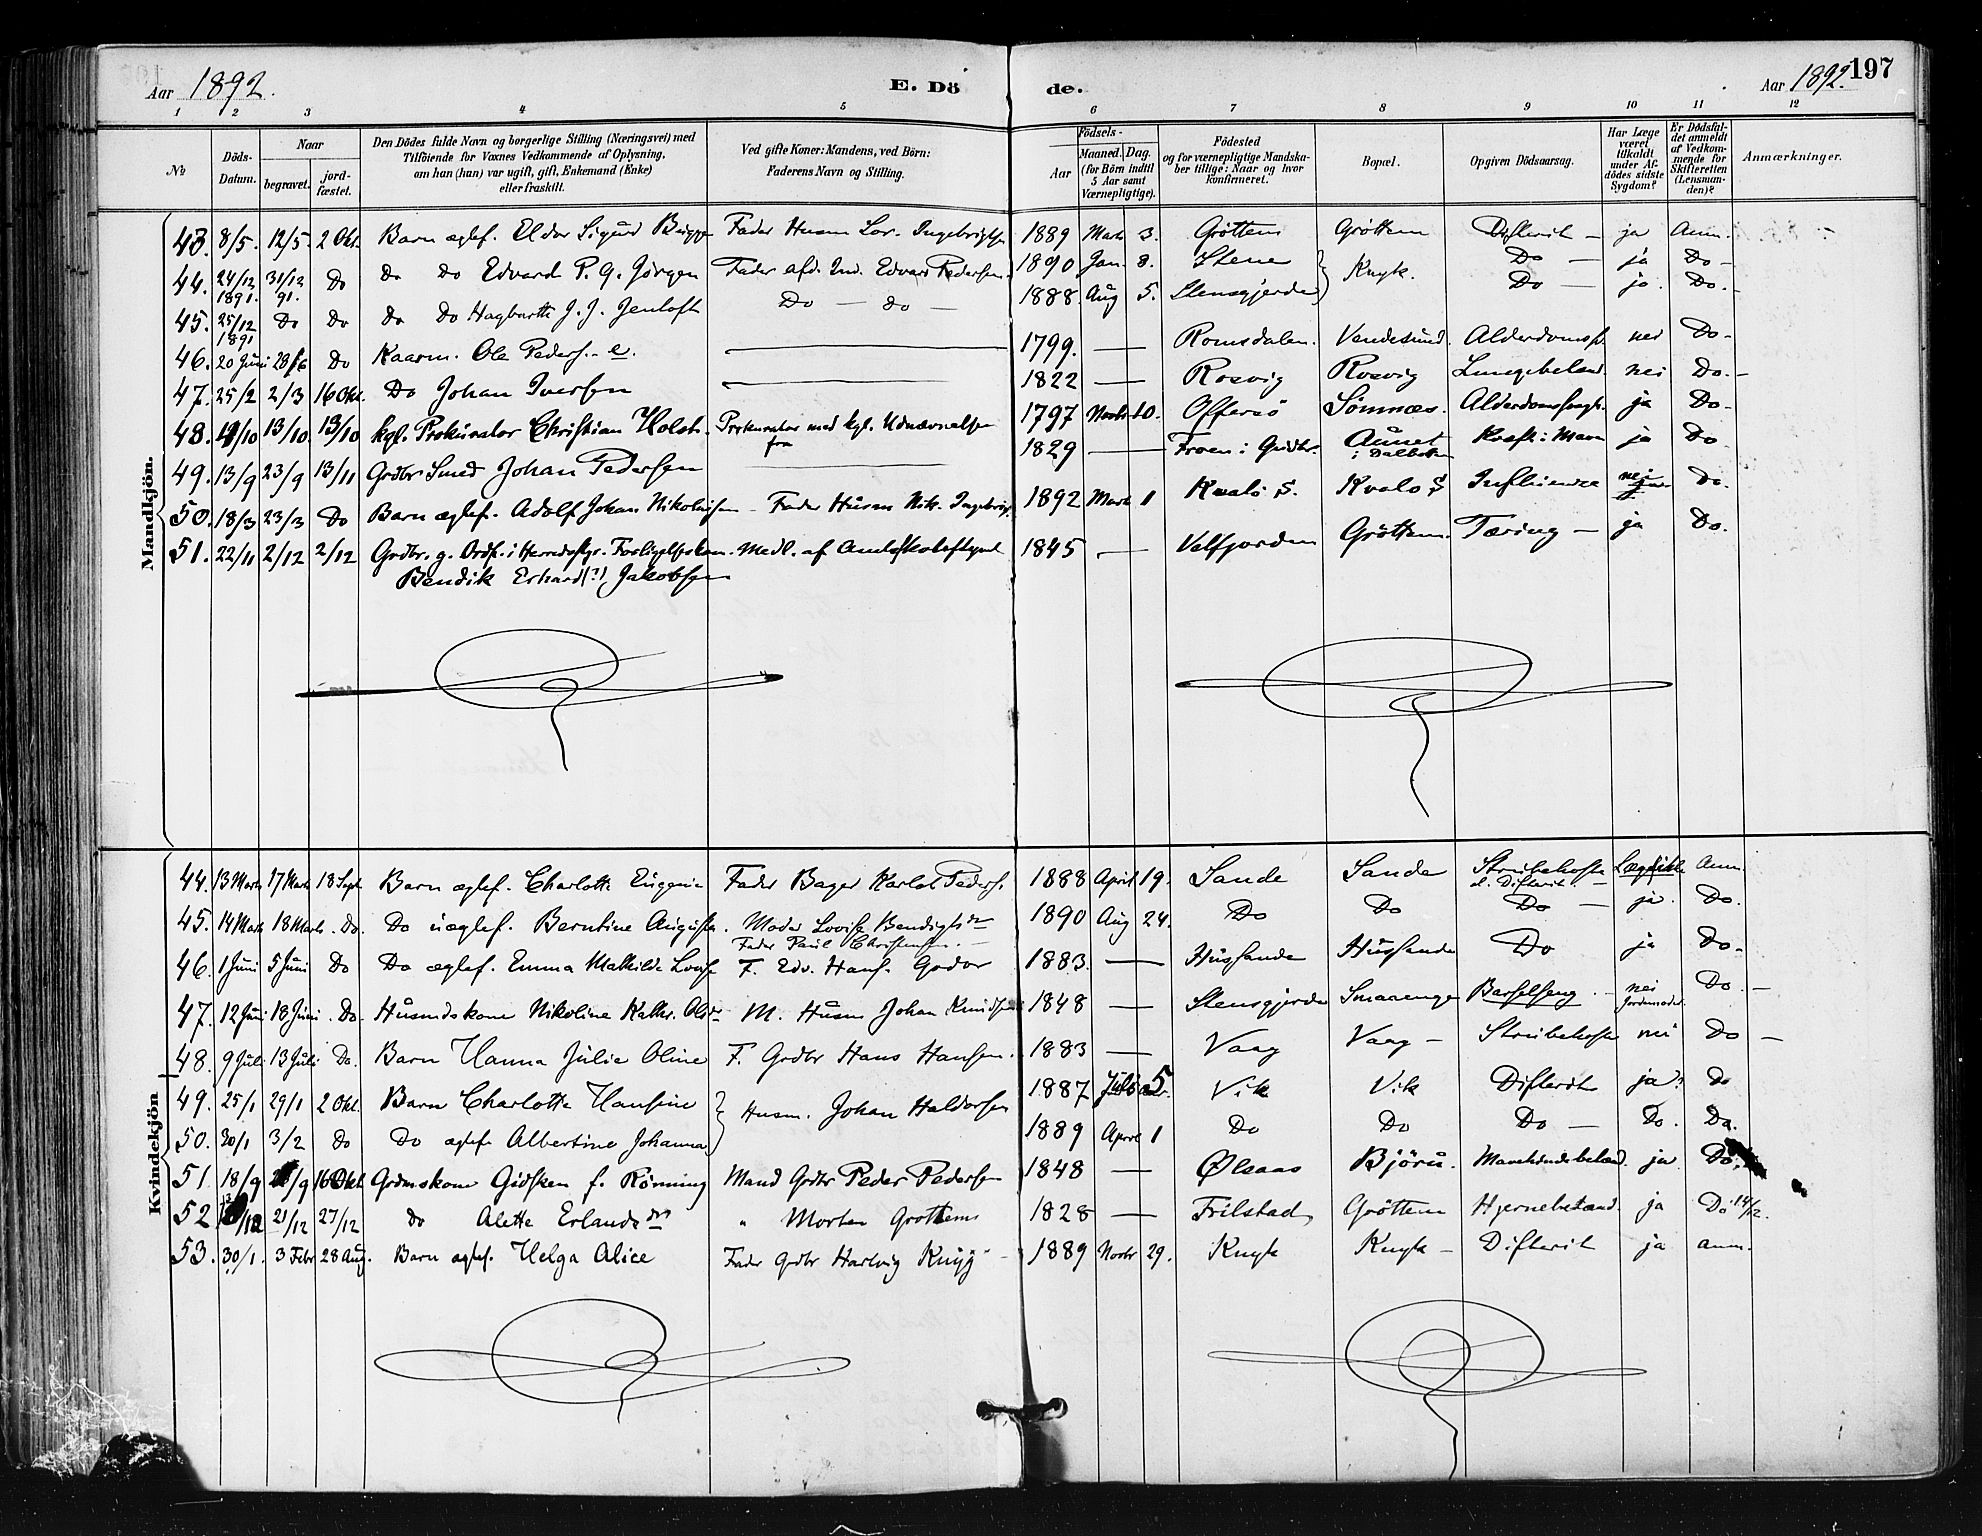 Aar 1892.
E. Dö
de.
Aar 1892.
197
1 2 3 4 5 6 7 8 9 10 11 12
No
Döds-Datum.
Naar
begravet.
jord-fæstet.
Den Dödes fulde Navn og borgerlige Stilling (Næringsvei) med
Tilföiende for Voxnes Vedkommende af Oplysning,
om han (hun) var ugift, gift, Enkemand (Enke)
eller fraskilt.
Ved gifte Koner: Mandens, ved Börn:
Faderens Navn og Stilling.
Födsels-
Aar
Maaned. Dag.
(for Börn indtil
5 Aar samt
Værnepligtige).
Födested
og for værnepligtige Mandska-
ber tillige: Naar og hvor
konfirmeret.
Bopæl.
Opgiven Dödsaarsag.
Har Læge
været
tilkaldt
under Af-
dödes sidste
Sygdom?
Er Dödsfal-
det anmeldt
af Vedkom-
mende for
Skifteretten
(Lensman-
den)?
Anmærkninger.
Mandkjön.
43. 8/5. 12/5 2 Okt. Barn ægtef. Eldor Sigurd Fader Husm Lor. Ingebrigtsen 1889 Marts 3. Gröttem Gröttem Difterit — ja Anm.
44. 24/12 1891. 31/12 91. Do Do Do Edvard P. G. Jörgen Fader afd. Ind. Edvard Pedersen. 1890 Jan. 8. Stene Knyk. Do — ja Do —
45. 25/12 1891 Do Do Do Do Hagbarth J. J. Jentoft Do — do — 1888 Aug 5. Stensgjerde Do — ja. Do. —
46. 20 Juni 28/6 Do Kaarm. Ole Peders. e. 1799. — Romsdalen. Vendesund. Alderdomss. nei Do -
47. 25/2 2/3 16 Okt. Do Johan Iversen 1822 — Rosvig Rosvig Lungebetænd. nei Do. —
48. /10 13/10. 13/10 kgl. Prokurator Christian Holst. Prokurator med kgl. Udnævnelse 1797 10. Offersö Sömnæs. Alderdomssvagh. ja Do -
49. 13/9 23/9 13/11 Grdbr Smed Johan Pedersen 1829 — Froen i Gudbr. Aunet i Dalbotten Kræft i Maven ja Do.
50. 18/3 23/3 Do Barn ægtef. Adolf Johan Nikolaisen - Fader Husm Nik. Ingebrigts. 1892 Marts 1 Kvalö S. Kvalö S Influenza nei Do.
51. 22/11 2/12 2/12 Grdbr. g. Ordf. i Herredsstyr. Forligelseskom. Medl. af Amtsskolestyret 1845 — Velfjorden Gröttem. Tæring — ja Do.
Bendik Erhard (?) Jakobsen
Kvindekjön
44. 13 Marts 17 Marts 18 Sept. Barn ægtef. Charlotte Eugenie Fader Bager Karlot Peders. 1888 April 19. Sande Sande Strubehoste Anm.
el. Difterit —
45. 14 Marts 18 Marts. Do. Do uægtef. Berntine Augusta. Moder Lovise Bendigtsdtr 1890 Aug 24. Do Do Do — ja. Do.
Fader Paul Christensen. —
46. 1 Juni 5 Juni Do Do ægtef. Emma Mathilde Lovise F. Edv. Hans. Grdbr 1883. — Hussande Hussande Do ja Do -
47. 12 Juni 18 Juni. Do. Husmdskone Nikoline Kathr. Olsdr M. Husm Johan Knudsen 1848 — Stensgjerde Smaaenge Barselseng. - nei Jordemoder. Do. —
48. 9 Juli 13 Juli Do. Barn Hanna Julie Oline F. Grdbr Hans Hansen. 1883 — Vaag Vaag — Strubehoste nei Do —
49. 25/1 29/1 2 Okt. Barn Charlotte Hansine Husm. Johan Haldorsen 1887 5 Vik Vik Difterit ja. Do
50. 30/1 3/2 Do Do ægtef. Albertine Johanna 1889 April 1 Do Do Do — Do. Do.
51. 18/9 /9 16 Okt. Grdmskone Gidsken f. Rönning Mand Grdbr Peder Pedersen 1848 — Ølsaas Björu. Mavehindebetænd. ja. Do.
52 /12 21/12 27/12 do Alette Erlandsdtr " Morten Grottems 1828 — Frilstad Gröttem Hjernebetænd. ja Do 14/12.
53. 30/1. 3 Febr 28 Aug. Barn ægtef. Helga Alice Fader Grdbr Hartvig Knyg — 1889 Novbr 29. Knyk Knyk — Difterit ja anm.